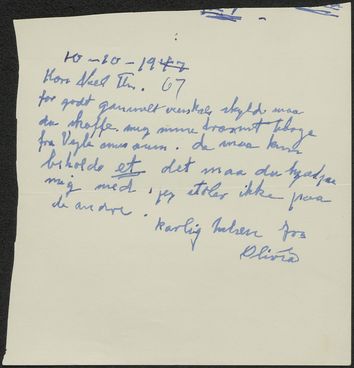 10-10-1947
67
Kære Niel Th.
for godt gammelt venskab skyld maa
du skaffe mig mine
fra Vejle museum. de maa kun
beholde et det maa du hjælpe
mig med, jeg stoler ikke paa
de andre.
Kærlig hilsen fra
Olivia